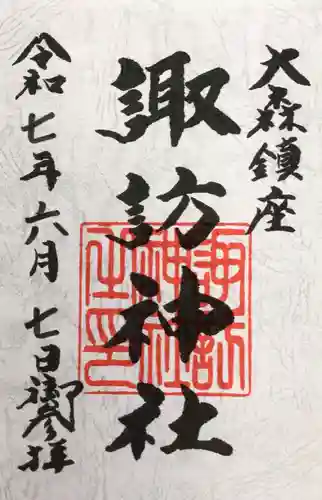 大森鎮座
諏訪神社
令和七年六月七日御参拝
諏訪神社之印